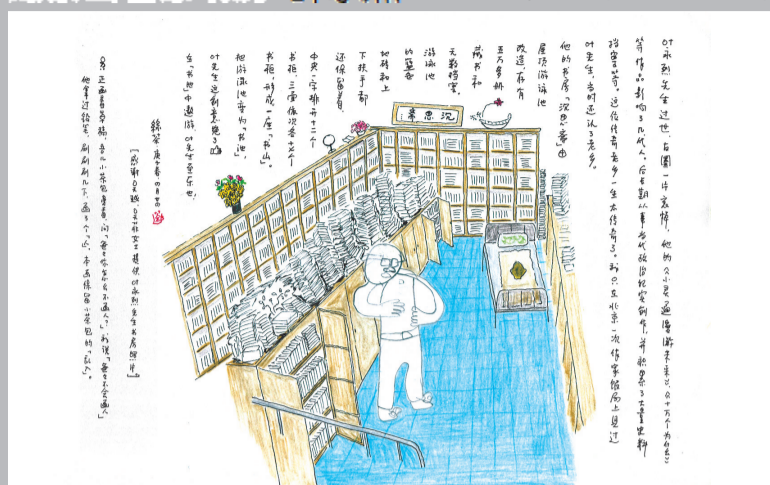 叶永烈先生过世，占圈一片哀悼，他的《小灵通漫游未来》《十万个为什么》
等作品影响了几代人。后长期从事当代政治纪实创作，并积累了大量史料
档案等。这位传奇老乡一生太传奇了。我只在北京一次作家饭局上见过
叶先生，当时还认了老乡。
他的书房「沉思斋」由
屋顶游泳池
改造，存有
五万多册
藏书和
无数档案。
游泳池
的蓝色
地砖和上
下扶手都
还保留着，
中央一字排开十二个
书柜，三面依次各十七个
书柜，形成一座「书山」。
把游泳池变为「书池」，
叶先生这创意绝了
在「书池」中遨游 叶先生至乐也。
绿茶 庚子春 四月
沉思斋
感谢 女士提供叶永烈先生书房照片
正画着草稿，看见小茶包 ，问「爸爸你怎么不画人？」我说「爸爸不会画人」
他拿过铅笔，刷刷刷几下，画了个「 」，本画保留小茶包的「 」。